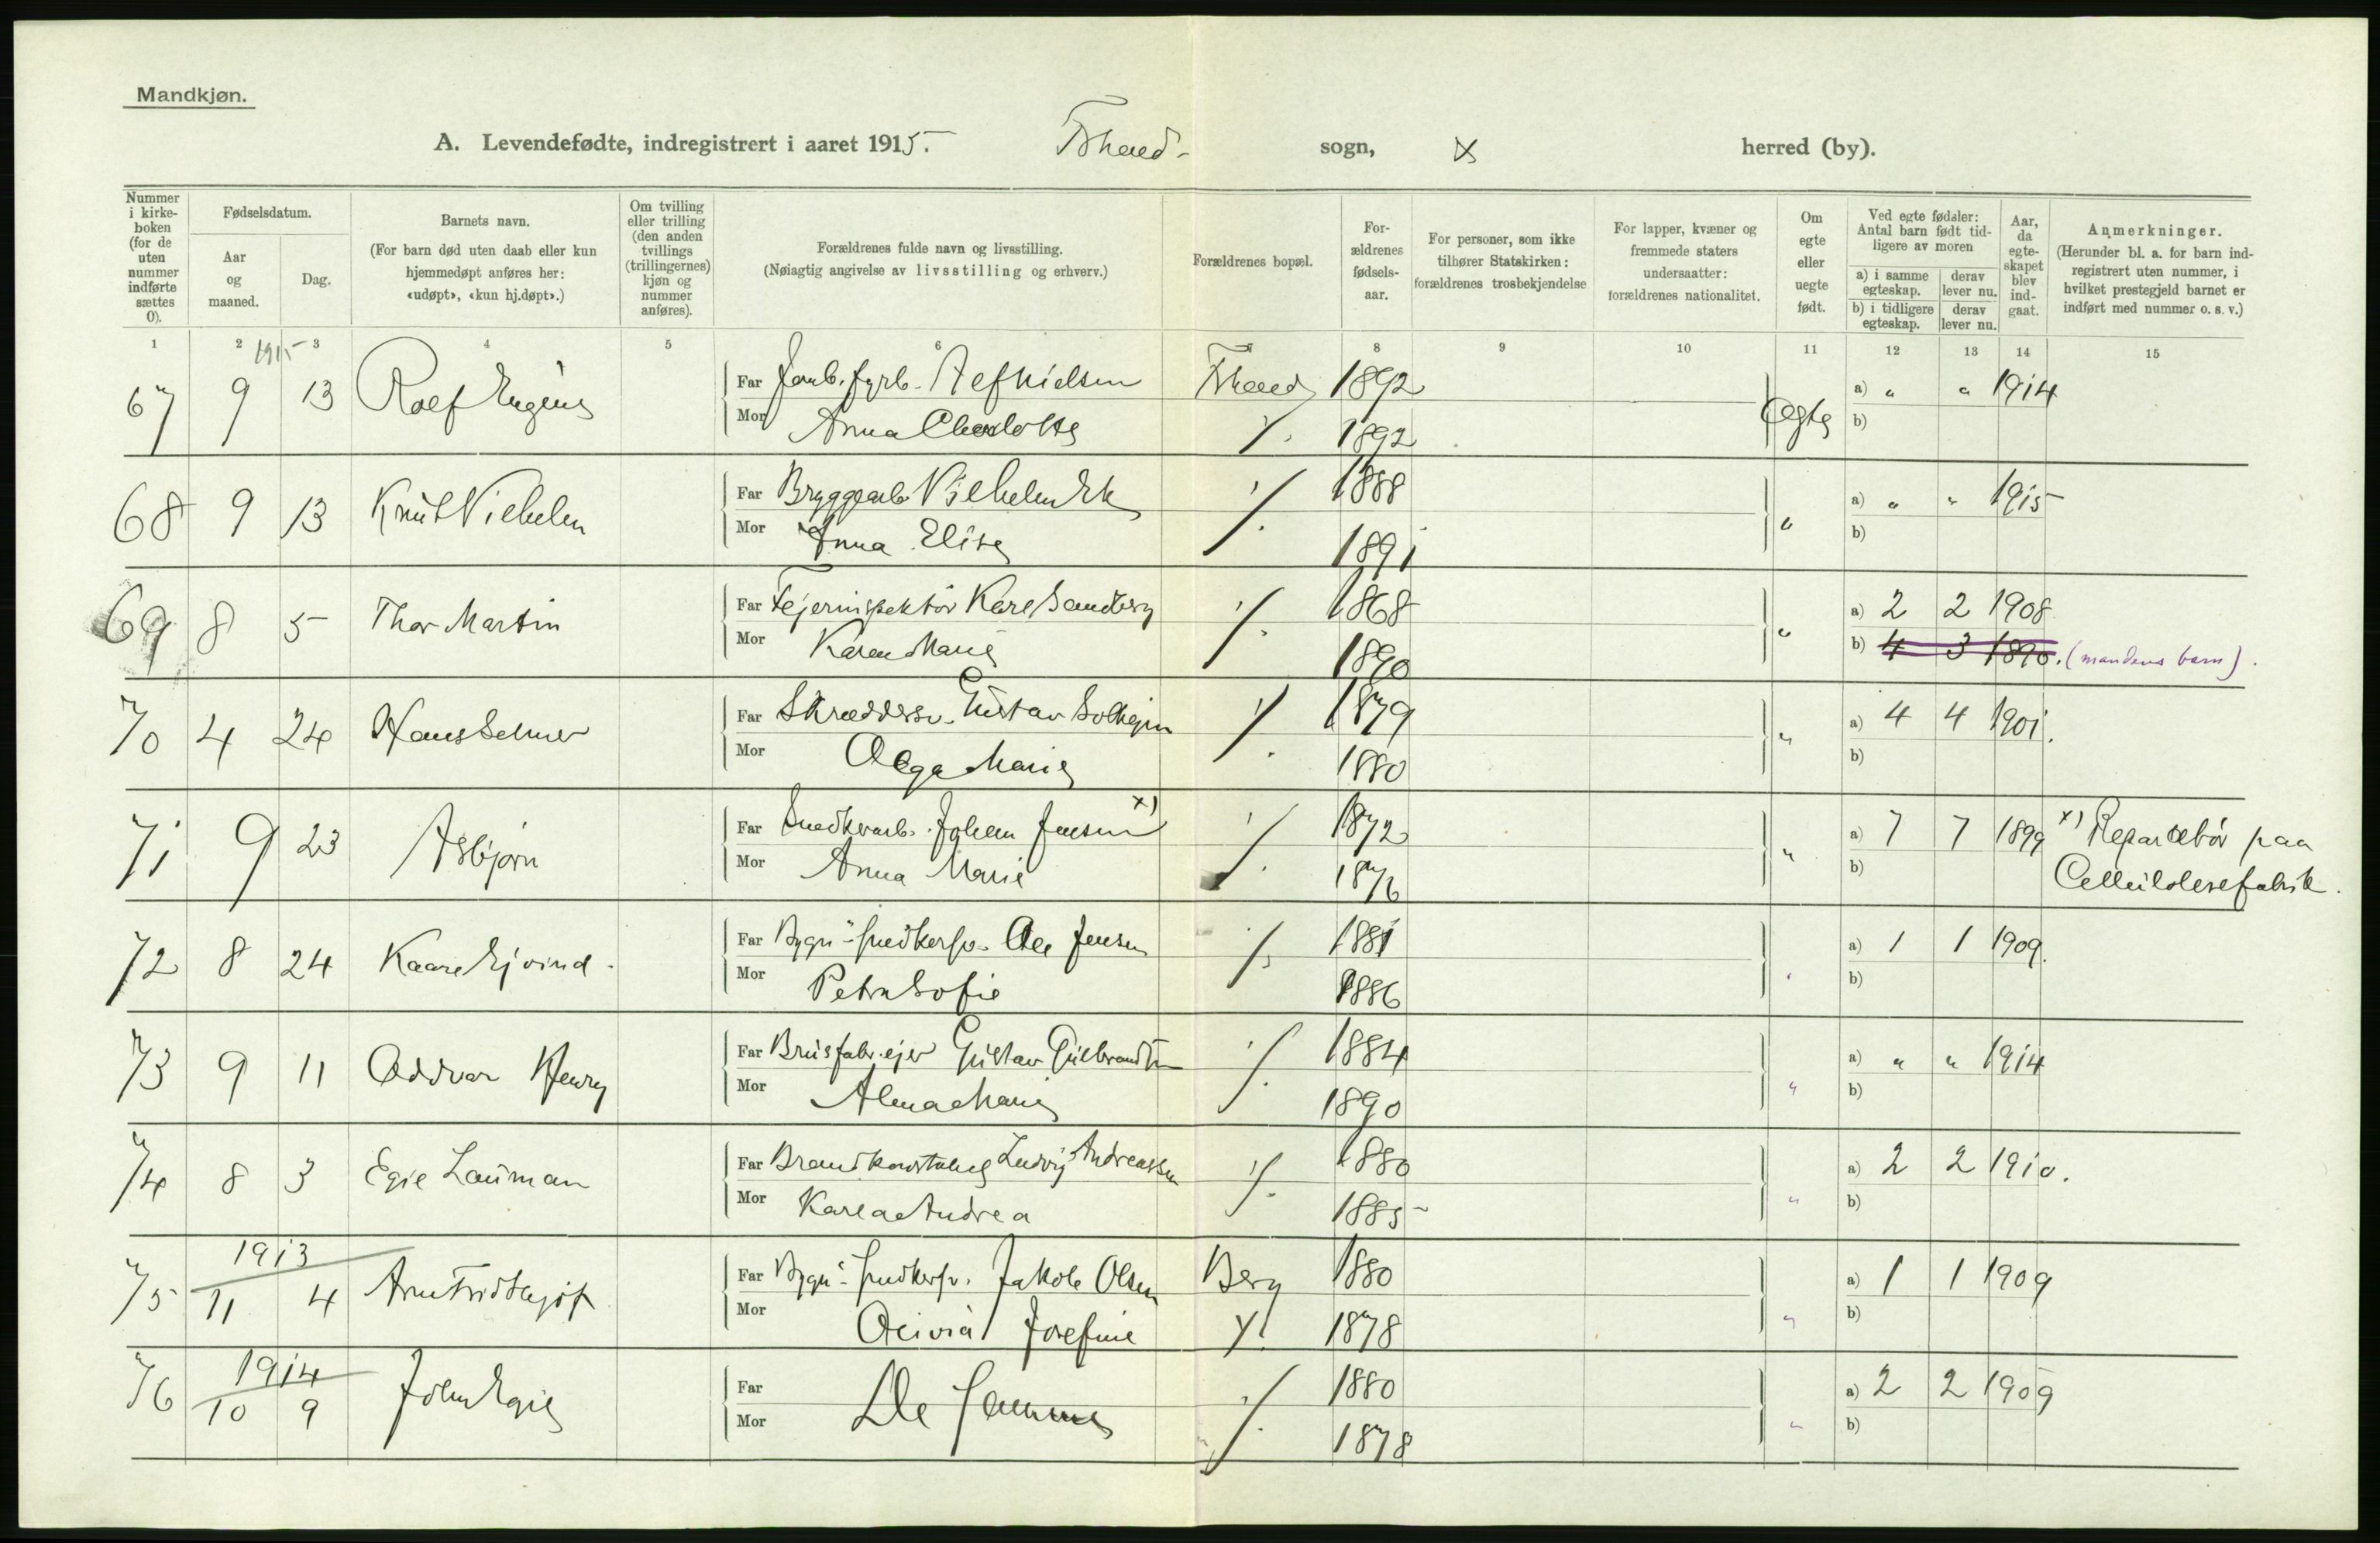 Mandkjøn.
A. Levendefødte, indregistrert i aaret 1915. Fhald sogn, herred (by).
Nummer i kirkeboken (for de uten nummer indførte sættes 0).
Fødselsdatum.
Aar og maaned.
Dag.
Barnets navn.
(For barn død uten daab eller kun hjemmedøpt anføres her: «udøpt», «kun hj.døpt».)
Om tvilling eller trilling (den anden tvillings (trillingernes) kjøn og nummer anføres).
Forældrenes fulde navn og livsstilling.
(Nøiagtig angivelse av livsstilling og erhverv.)
Forældrenes bopæl.
Forældrenes fødselsaar.
For personer, som ikke tilhører Statskirken: forældrenes trosbekjendelse
For lapper, kvæner og fremmede staters undersaatter: forældrenes nationalitet.
Om egte eller uegte født.
Ved egte fødsler: Antal barn født tidligere av moren
a) i samme egteskap. derav lever nu.
b) i tidligere egteskap. derav lever nu.
Aar, da egteskapet blev indgaat.
Anmerkninger.
(Herunder bl. a. for barn indregistrert uten nummer, i hvilket prestegjeld barnet er indført med nummer o. s. v.)
1 2 3 4 5 6 8 9 10 11 12 13 14 15
1915
67 9 13 Rolf Eugen Far Nielsen Fhald 1892 Egte a) " " 1914
Mor Anna Charlotte 1892 b)
68 9 13 Knut Vilhelm Far Bryggearb. Vilhelm Ek 1888 " a) " " 1915
Mor Anna Elise 1891 b)
69 8 5 Thor Martin Far Feierinspektør Karl Sandberg 1868 " a) 2 2 1908
Mor Karen Marie 1890 b) 4 3 1890. (mandens barn).
70 4 24 Hans Selmer Far Skrædersv. Gustav Solhejm 1879 " a) 4 4 1901.
Mor Olga Marie 1880 b)
71 9 23 Asbjørn Far Snedkerarb. Johan Jensen x) 1872 " a) 7 7 1899 x) Reparatør paa
Mor Anna Marie 1876 b) Cellulosefabrik.
72 8 24 Kaare Ejvind. Far Bygn.-snedkersv. Ole Jensen 1881 " a) 1 1 1909.
Mor Petra Sofie 1886 b)
73 9 11 Oddvar Henry Far Brusfabr.ejer Gustav Gulbrandsen 1884 " a) " " 1914
Mor Alma Marie 1890 b)
74 8 3 Egil Lauman Far Brandkonstabel Ludvig Andreassen 1880 " a) 2 2 1910.
Mor Karla Andrea 1885 b)
1913
75 11 4 Arne Fridthjof Far Bygn.-snedkersv. Jakob Olsen Berg 1880 " a) 1 1 1909
Mor Olivia Josefine 1878 b)
1914
76 10 9 John Egil Far De samme 1880 " a) 2 2 1909
Mor 1878 b)